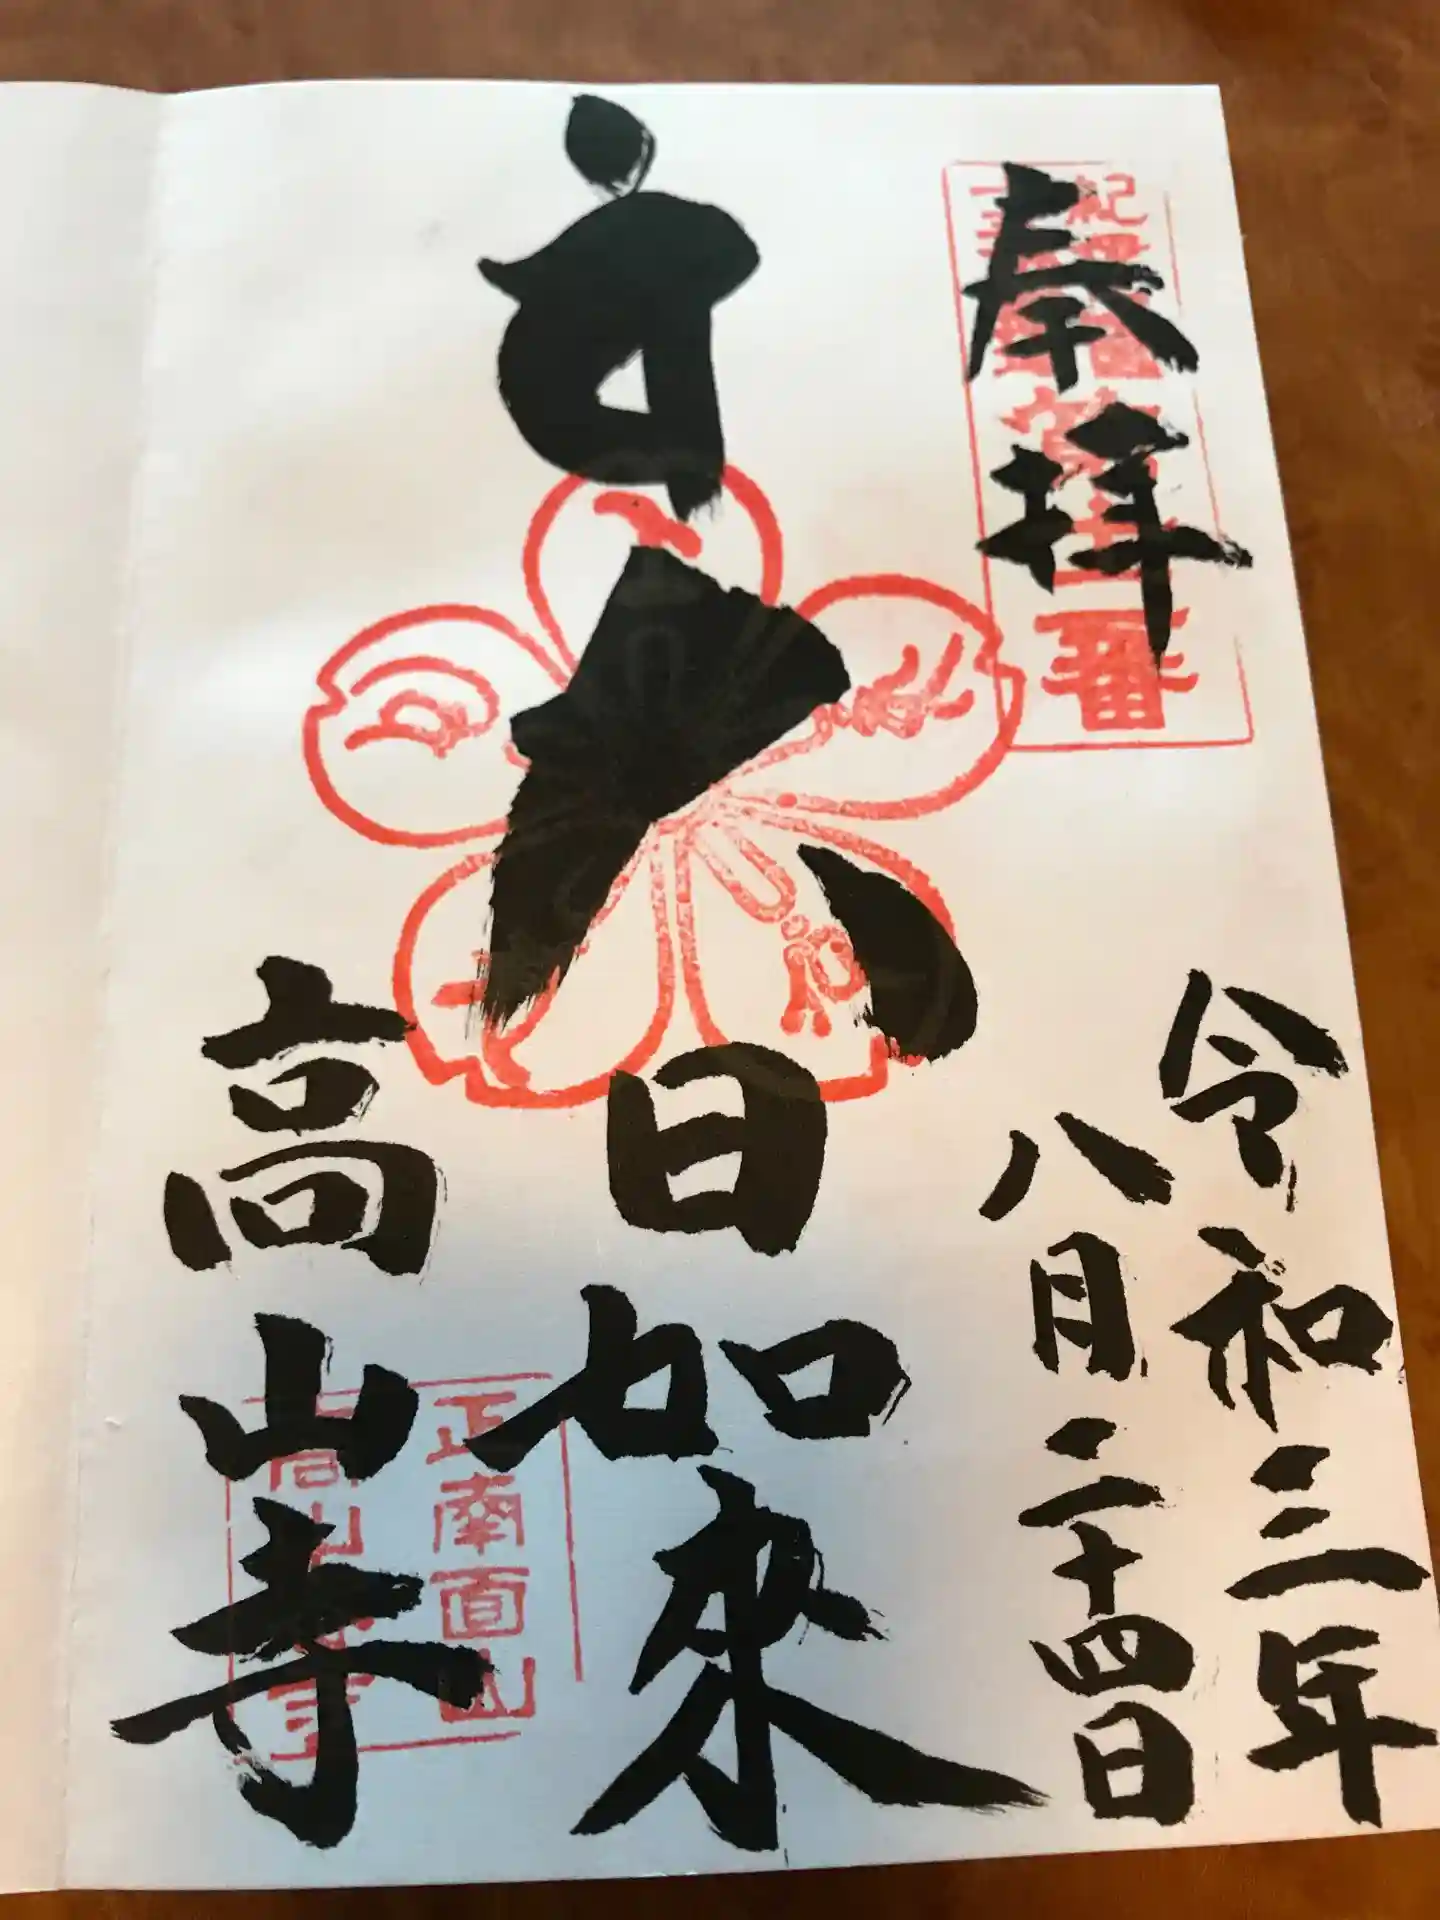 奉拝
令和三年
八月二十四日
大日如來
高山寺
正南面山
高山寺